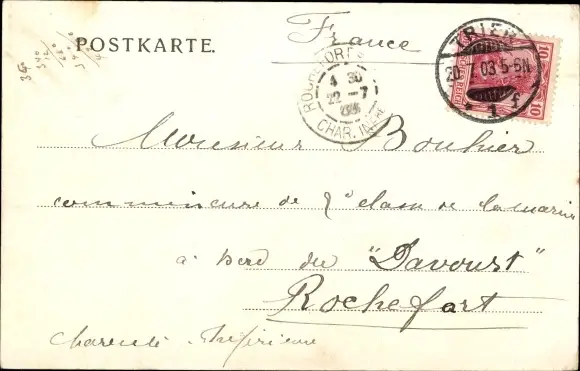 France
POSTKARTE.
TRIER
20.7.03.5-6N.
* 1 f
10 10
REICH
ROCHEFORT S
4 30
22 - 7
03
CHAR. INFRE
Monsieur Bouhier
commissaire de 2e classe de la marine
à bord du "Davoust"
Rochefort
Charente-Inférieure